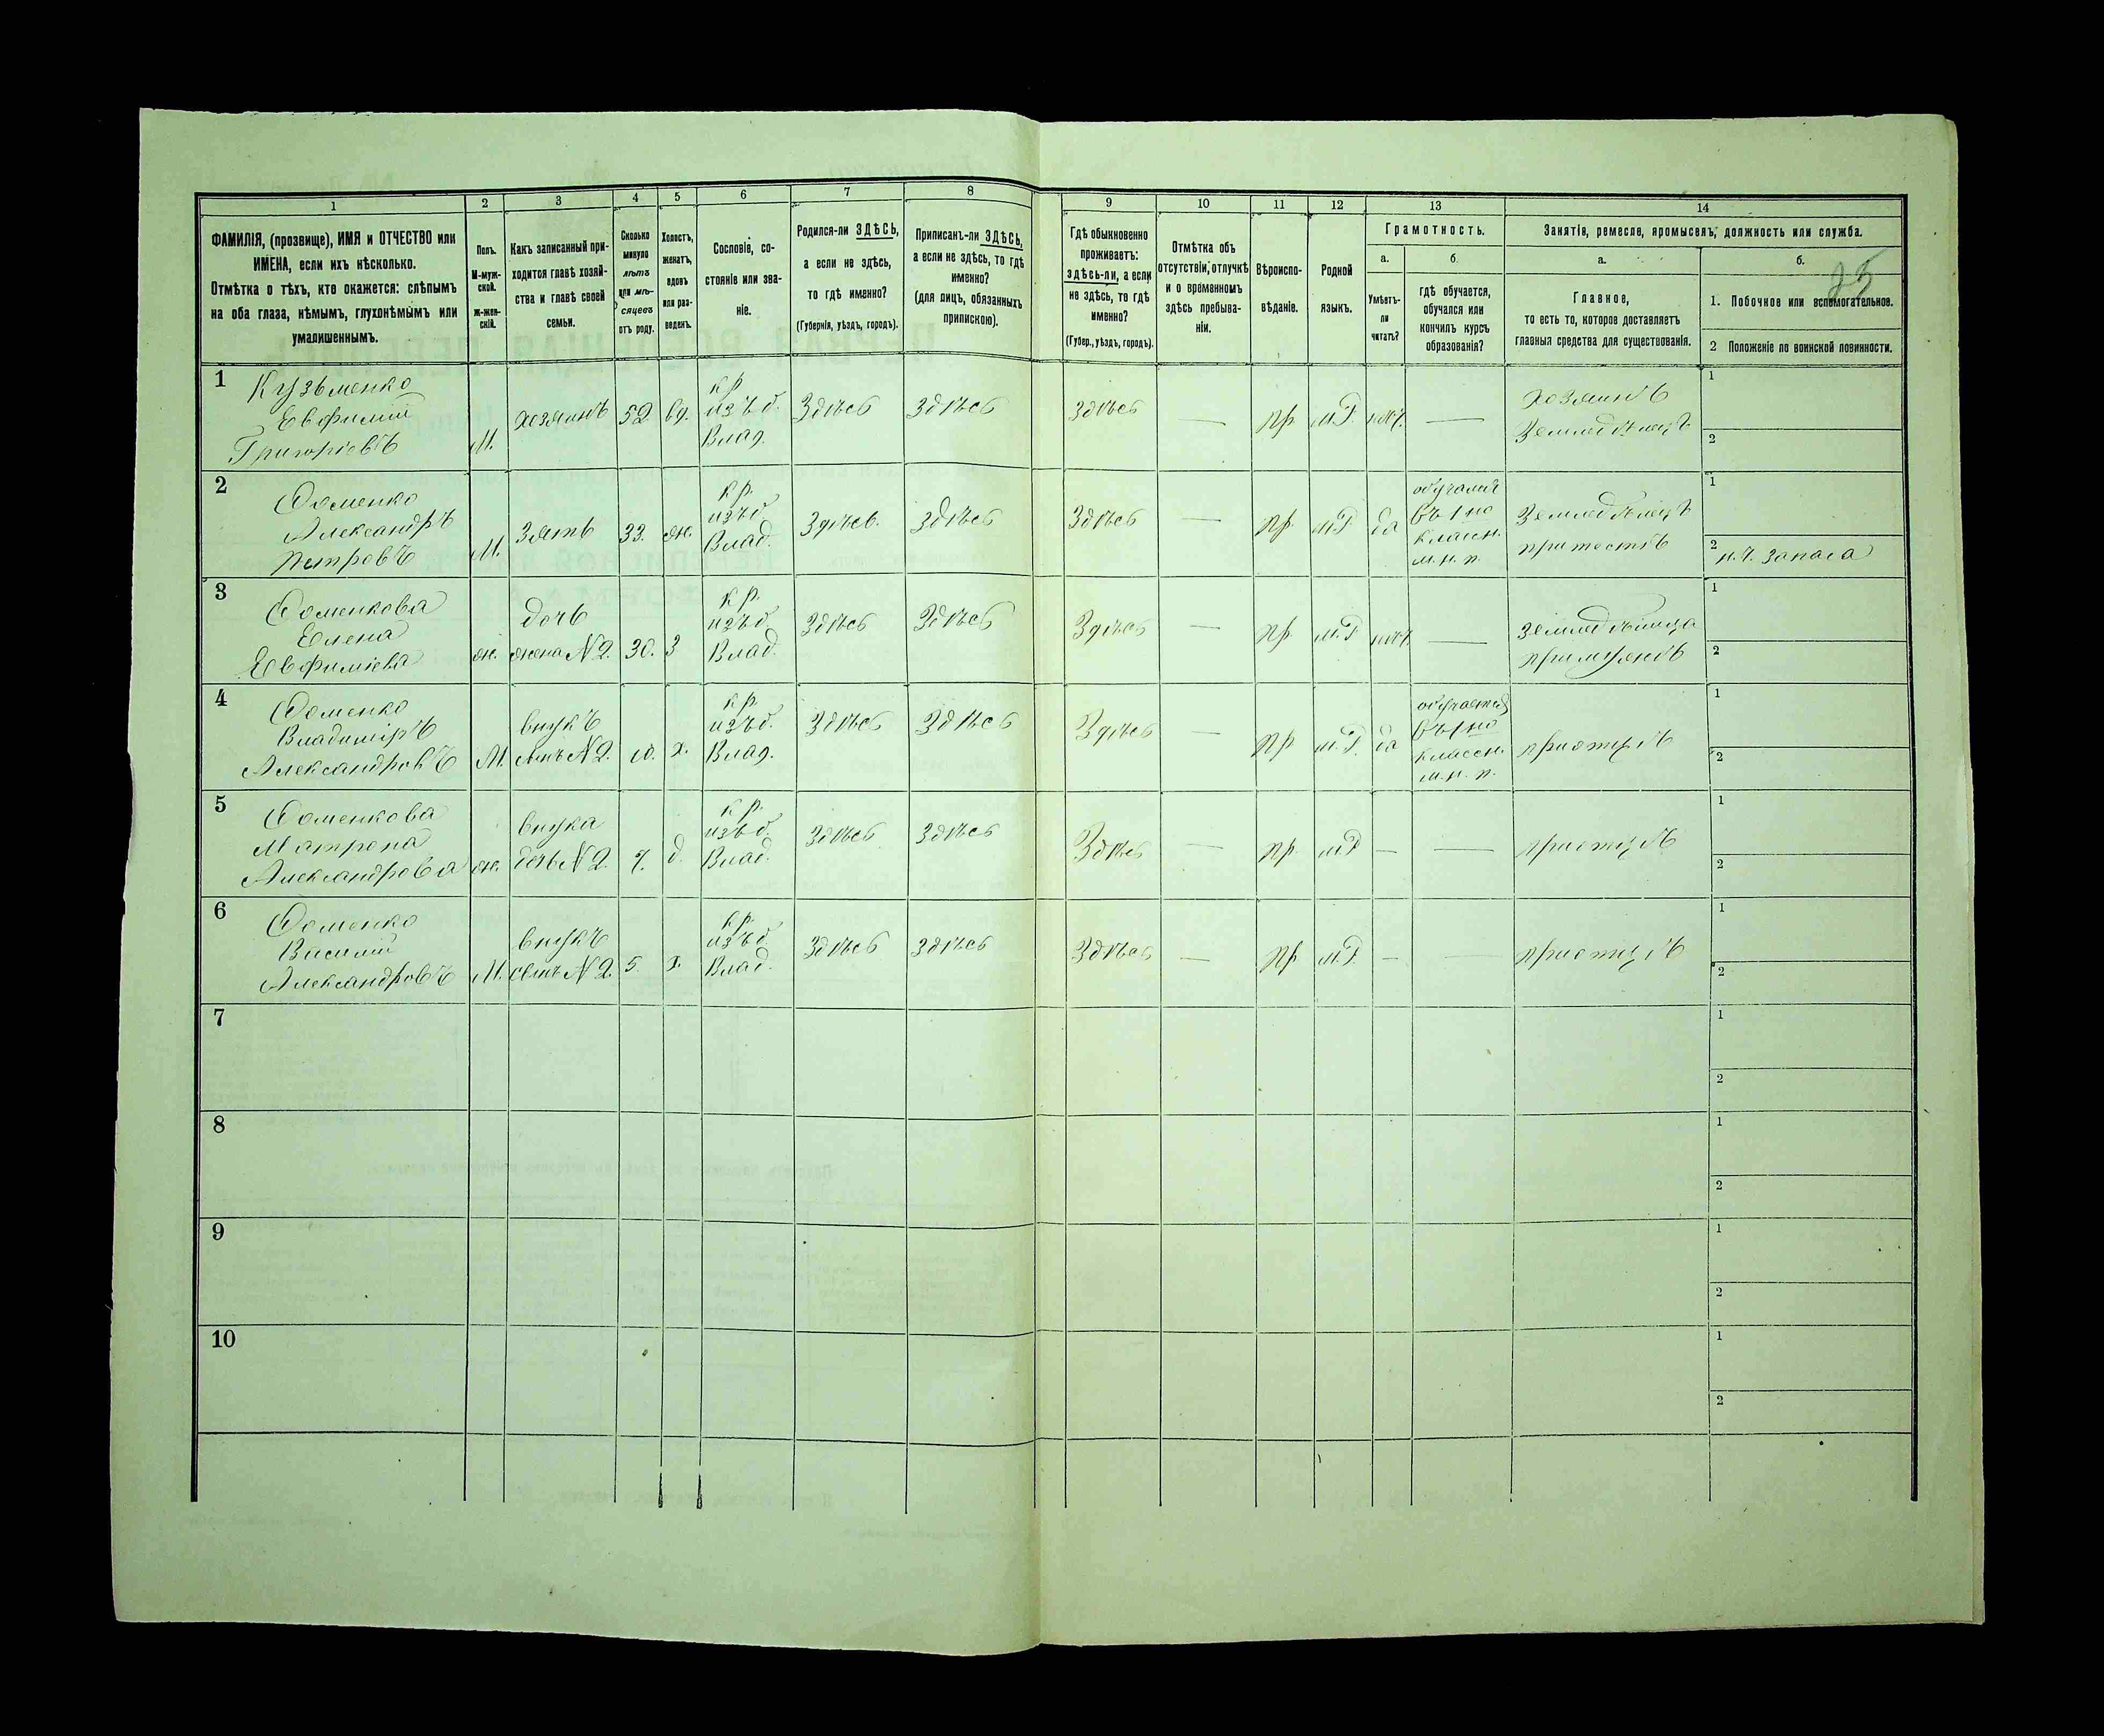 1 2 3 4 5 6 7 8 9 10 11 12 13 14
ФАМИЛІЯ, (прозвище), ИМЯ и ОТЧЕСТВО или
ИМЕНА, если ихъ нѣсколько.
Отмѣтка о тѣхъ, кто окажется: слѣпымъ
на оба глаза, нѣмымъ, глухонѣмымъ или
умалишеннымъ.
Полъ.
М-муж-
ской.
ж-жен-
скій.
Какъ записанный при-
ходится главѣ хозяй-
ства и главѣ своей
семьи.
Сколько
минуло
лѣтъ
или мѣ-
сяцевъ
отъ роду.
Холостъ,
женатъ,
вдовъ
или раз-
веденъ.
Сословіе, со-
стояніе или зва-
ніе.
Родился-ли ЗДѢСЬ,
а если не здѣсь,
то гдѣ именно?
(Губернія, уѣздъ, городъ).
Приписанъ-ли ЗДѢСЬ,
а если не здѣсь, то гдѣ
именно?
(для лицъ, обязанныхъ
припискою).
Гдѣ обыкновенно
проживаетъ:
здѣсь-ли, а если
не здѣсь, то гдѣ
именно?
(Губер., уѣздъ, городъ).
Отмѣтка объ
отсутствіи, отлучкѣ
и о временномъ
здѣсь пребыва-
ніи.
Вѣроиспо-
вѣданіе.
Родной
языкъ.
Грамотность.
а.
Умѣетъ-
ли
читать?
б.
гдѣ обучается,
обучался или
кончилъ курсъ
образованія?
Занятіе, ремесло, промыселъ, должность или служба.
а.
Главное,
то есть то, которое доставляетъ
главныя средства для существованія.
б.
25
1. Побочное или вспомогательное.
2 Положеніе по воинской повинности.
1
Кузьменко
Евфимій
Григоріевъ
М.
хозяинъ
52
вд.
кр
изъ б.
Влад.
Здѣсь
Здѣсь
Здѣсь
—
пр
м.Р.
нѣт.
—
хозяинъ
Земледѣлецъ
1
2
2
Фоменко
Александръ
Петровъ
М.
Зять
33.
ж.
кр.
изъ б
Влад.
Здѣсь.
Здѣсь
Здѣсь
—
пр
м.Р
да
въ 1 но
классн.
м. н. п.
Земледѣлецъ
1
2 н.ч. запаса
3
Фоменкова
Елена
Евфиміева
ж.
дочь
жена №2.
30.
З
кр.
изъ б
Влад.
Здѣсь
Здѣсь
Здѣсь
—
пр
м.Р
нѣт.
—
при мужѣ
1
2
4
Фоменко
Владиміръ
Александровъ
М.
внукъ
сынъ №2.
10.
х.
кр
изъ б.
Влад.
Здѣсь
Здѣсь
Здѣсь
—
пр
м.Р.
да
обучается
въ 1 но
классн.
м. н. п.
при отцѣ
1
2
5
Фоменкова
Матрона
Александрова
ж.
внука
дочь №2.
7.
д.
кр.
изъ б.
Влад.
Здѣсь
Здѣсь
Здѣсь
—
пр
м.Р
—
—
при отцѣ
1
2
6
Фоменко
Василій
Александровъ
М.
внукъ
сынъ №2.
5.
х.
кр.
изъ б
Влад.
Здѣсь
Здѣсь
Здѣсь
—
пр
м.Р.
—
—
при отцѣ
1
2
7
1
2
8
1
2
9
1
2
10
1
2